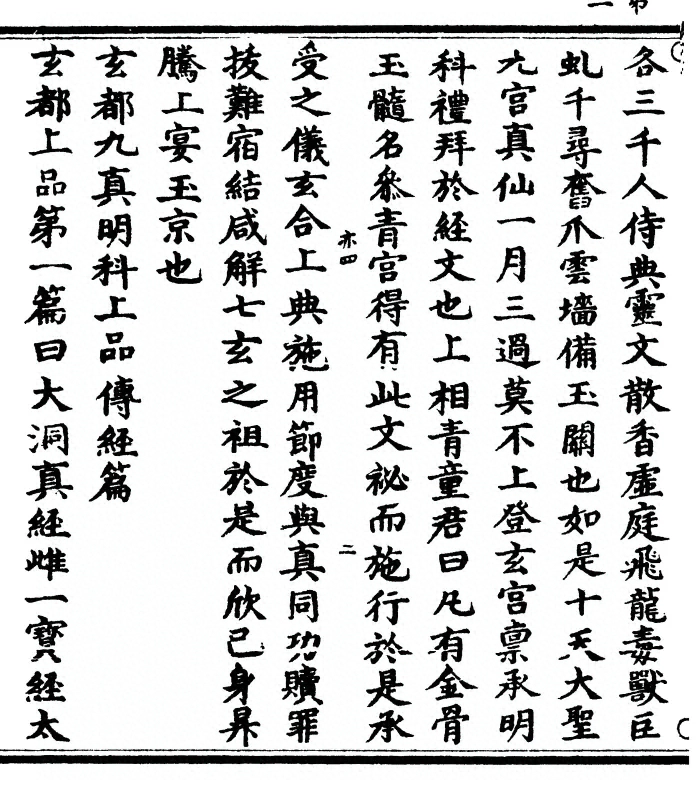 各三千人侍典靈文散香虛庭飛龍毒獸巨
虬千尋奮爪雲墻備玉闕也如是十天大聖
九宮真仙一月三過莫不上登玄宮稟承明
科禮拜於經文也上相青童君曰凡有金骨
玉髓名叅青宮得有此文祕而施行於是承
亦四 二
受之儀玄合上典施用節度與真同功贖罪
拔難宿結咸解七玄之祖於是而欣己身昇
騰上宴玉京也
玄都九真明科上品傳經篇
玄都上品第一篇曰大洞真經雌一寶經太